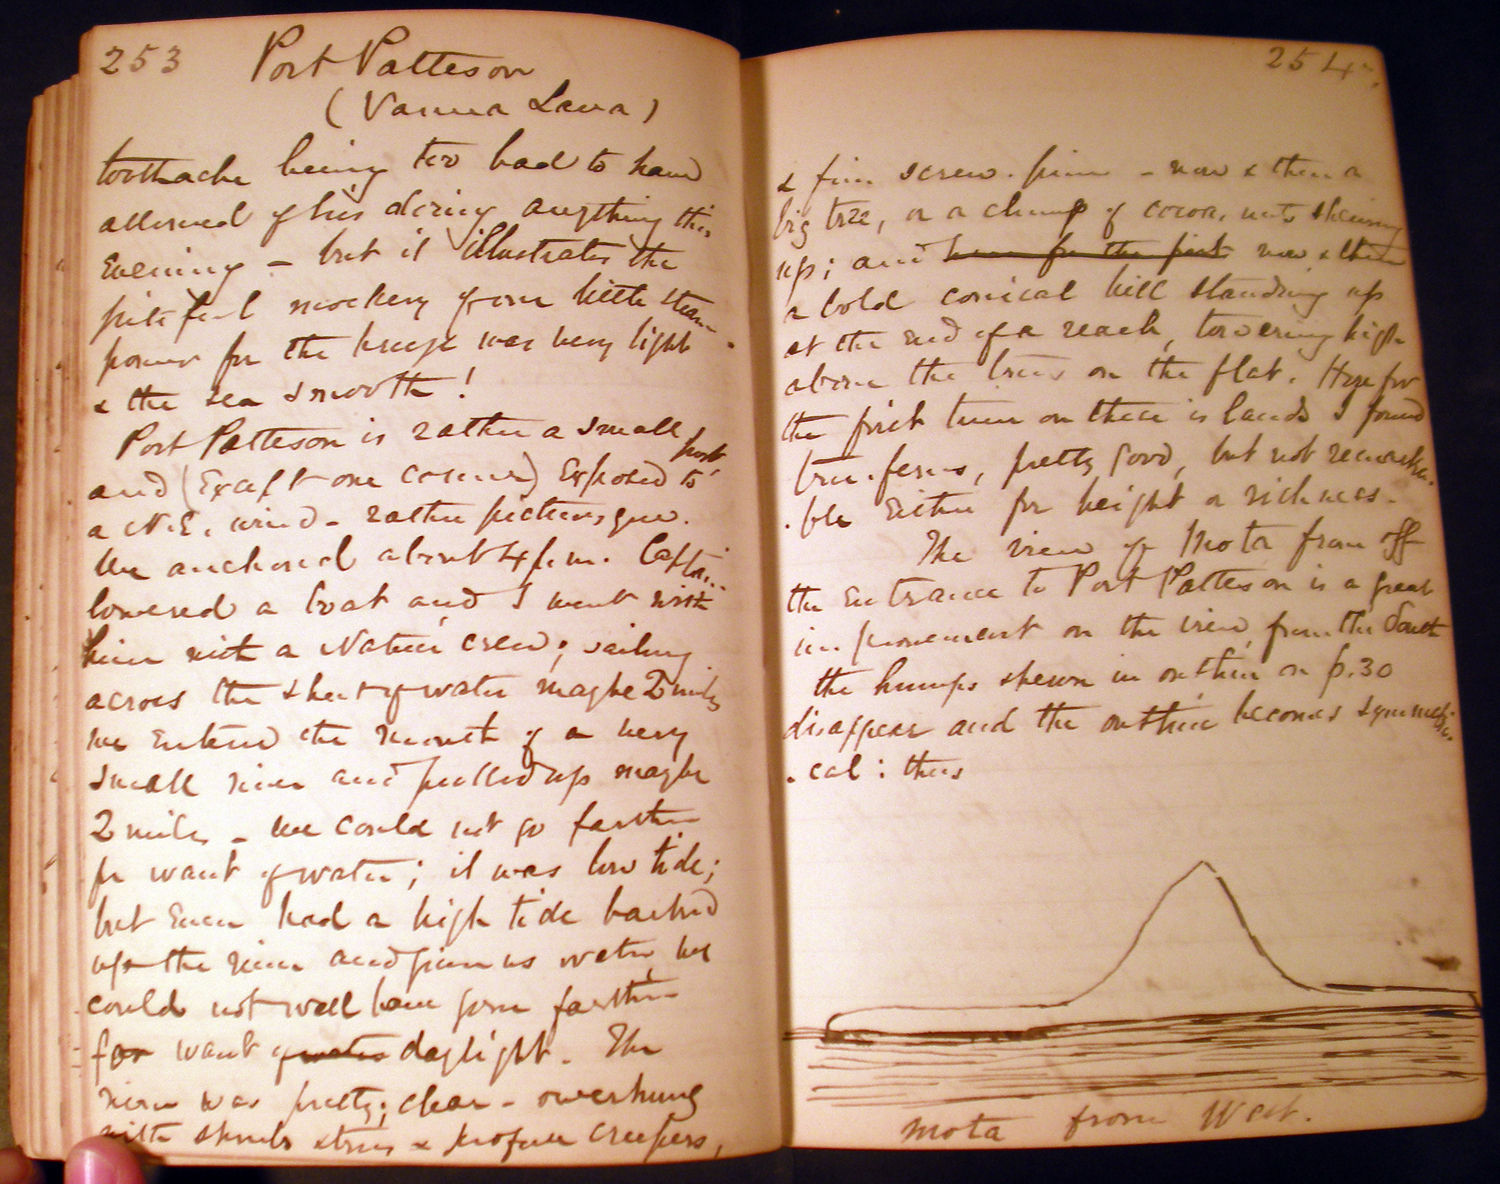 253 Port Patteson
(Vanua Lava)
toothache being too bad to have
allowed of his doing anything this
Evening – but it illustrates the
pitiful mockery of our little steam
power for the breeze was very light
& the sea smooth!
Port Patteson is rather a small port,
and (Except one corner) Exposed to
a N.E. wind – rather picturesque.
We anchored about 4 p.m. Captain
lowered a boat and I went with
him with a Native crew; sailing
across the sheet of water maybe 2 miles
we Entered the mouth of a very
small river and pulled up maybe
2 miles – we could not go farther
for want of water; it was low tide;
but Even had a high tide backed
up the river and given us water, we
could not well have gone farther
for want of water daylight. The
river was pretty; clear – overhung
with shrubs & trees & profuse creepers,
254
& fine screw-pines – now & then a
big tree, or a clump of cocoa-nuts shewing
up; and now & then
a bold conical hill standing up
at the end of a reach, towering high
above the trees on the flat. Here for
the first time on these islands I found
tree-ferns, pretty good, but not remarka-
-ble Either for height or richness.
The view of Mota from off
the Entrance to Port Patteson is a great
improvement on the view from the South
the humps shewn in outline on p.30
disappear and the outline becomes symmetri-
-cal: thus
Mota from West.